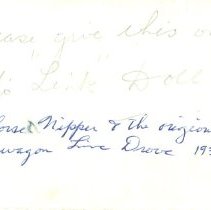 ease give this
"Link Doll
orse Nipper & the origion
wagon Live Drove 193